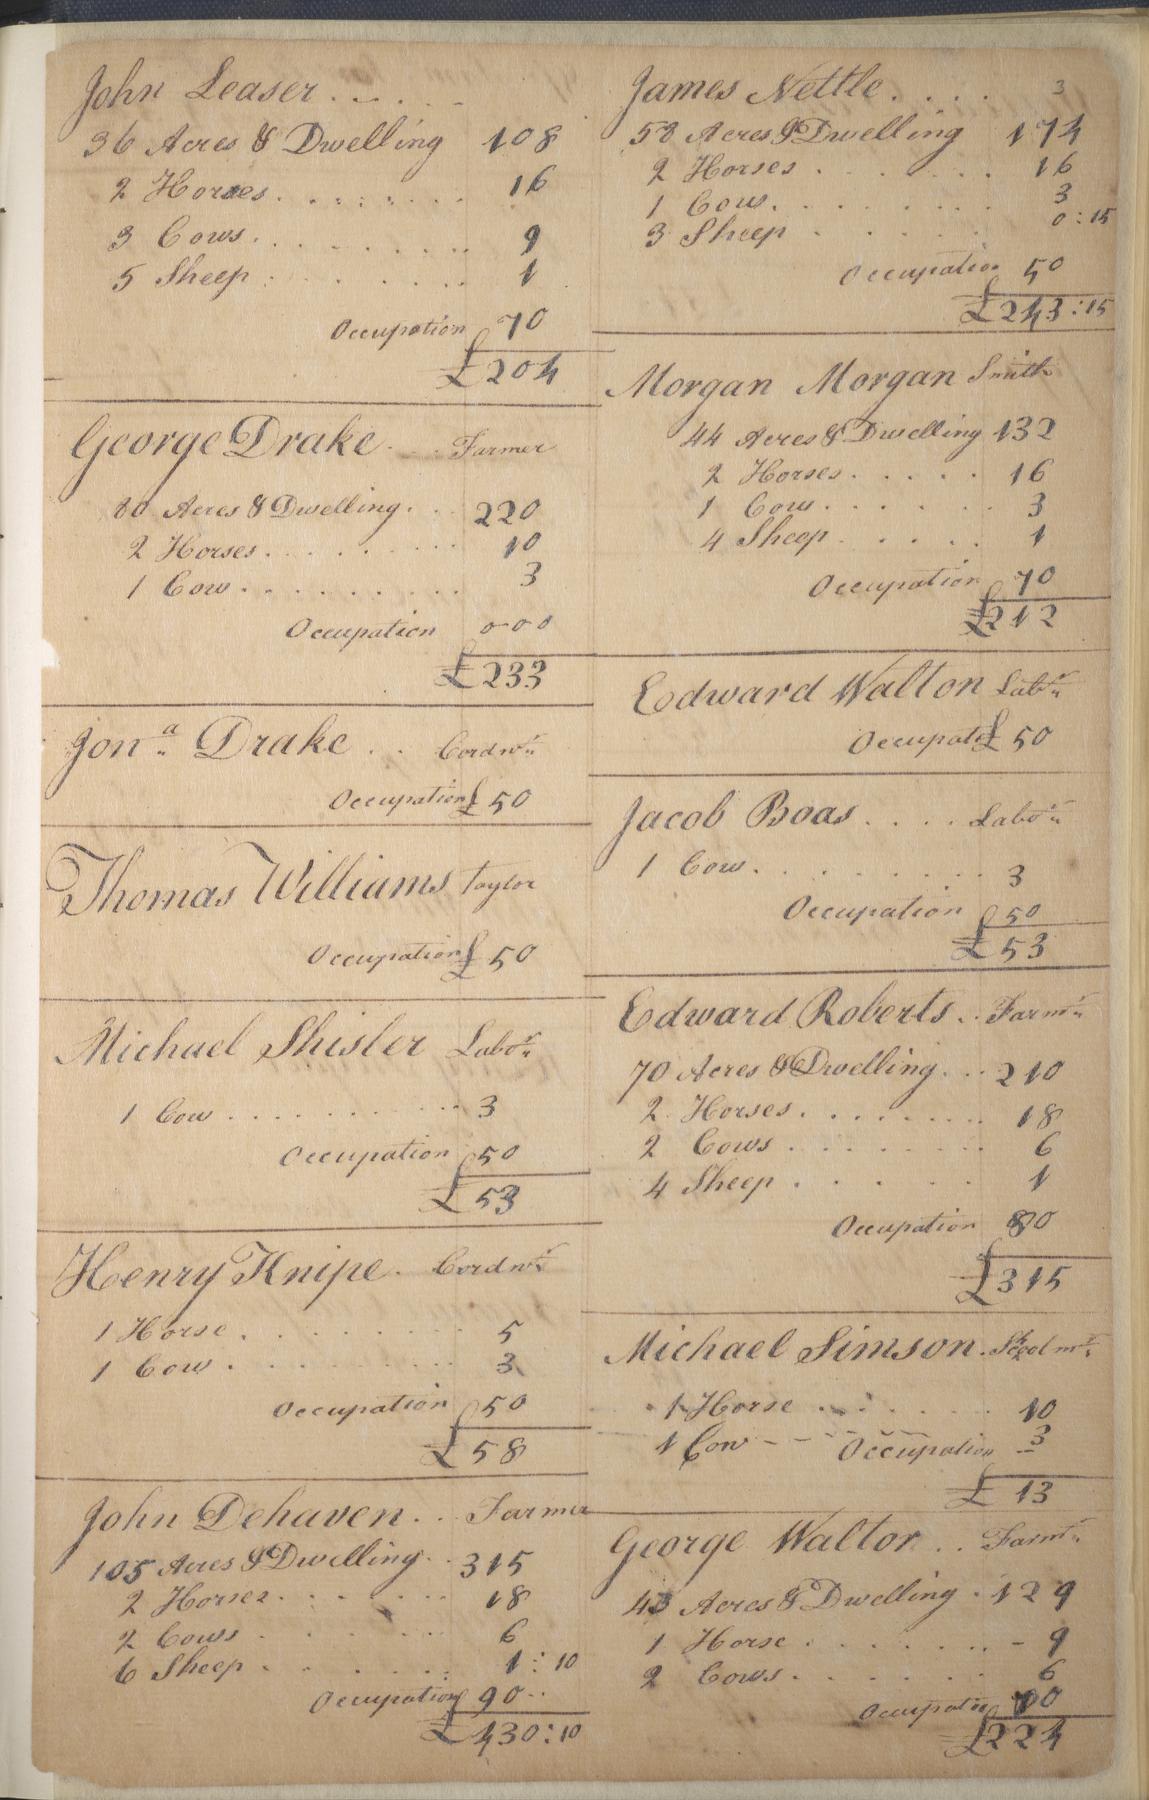 John Leaser . . . . .
36 Acres & Dwelling 108
2 Horses . . . . . . . 16
3 Cows . . . . . . . . 9
5 Sheep . . . . . . . 1
Occupation 70
£ 204
George Drake . . . Farmer
80 Acres & Dwelling . . 220
2 Horses . . . . . . . . . 10
1 Cow . . . . . . . . . 3
Occupation 000
£ 233
Jonª Drake . . Cordwr
Occupation £ 50
Thomas Williams Taylor
Occupation £ 50
Michael Shisler Labor
1 Cow . . . . . . . . . . 3
Occupation 50
£ 53
Henry Knipe . Cordwr
1 Horse . . . . . . . . 5
1 Cow . . . . . . . . . 3
Occupation 50
£ 58
John Dehaven . . Farmer
105 Acres & Dwelling . . 315
2 Horses . . . . . . 18
2 Cows . . . . . . 6
6 Sheep . . . . . . 1 : 10
Occupation 90 . .
£ 430 : 10
3
James Nettle . . . .
58 Acres & Dwelling 174
2 Horses . . . . . . . 16
1 Cow . . . . . . . . 3
3 Sheep . . . . . 0 : 15
Occupation 50
£ 243 : 15
Morgan Morgan Smith
44 Acres & Dwelling 132
2 Horses . . . . . 16
1 Cow . . . . . . . 3
4 Sheep . . . . . 1
Occupation 70
£ 212
Edward Walton Labr
Occupatn £ 50
Jacob Boas . . . . Labor
1 Cow . . . . . . . . . 3
Occupation 50
£ 53
Edward Roberts . . Farmr
70 Acres & Dwelling . . . 210
2 Horses . . . . . . . . 18
2 Cows . . . . . . . . 6
4 Sheep . . . . . 1
Occupation 80
£ 315
Michael Simson .
1 Horse . . . . . . . 10
1 Cow - - - - Occupation 3
£ 13
George Walton . . Farmr
43 Acres & Dwelling . 129
1 Horse . . . . . . . - 9
2 Cows . . . . . . . 6
Occupation
£ 224